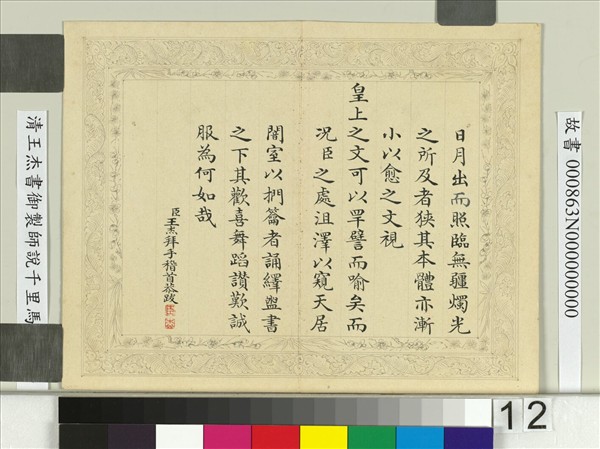 日月出而照臨無疆燭光
之所及者狹其本體亦漸
小以愈之文視
皇上之文可以罕譬而喻矣而
况臣之處沮澤以窺天居
闇室以捫籥者誦繹盥書
之下其歡喜舞蹈讃歎誠
服為何如哉
臣王杰拜手稽首恭跋
故書 000863N000000000
清王杰書御製師說千里馬
12